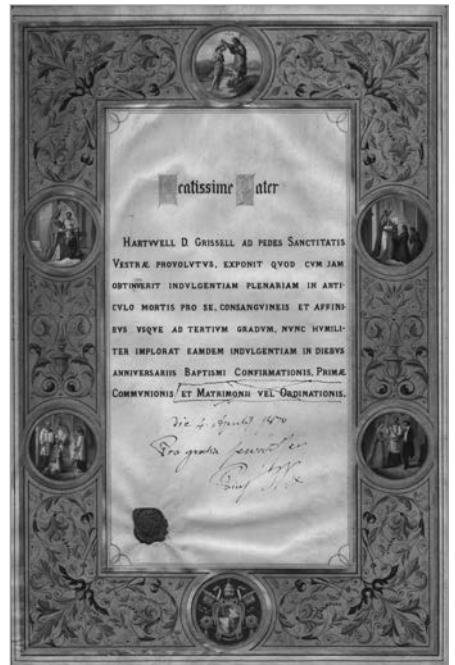 Beatissime Pater
HARTWELL D. GRISSELL AD PEDES SANCTITATIS
VESTRÆ PROVOLVTVS, EXPONIT QVOD CVM JAM
OBTINVERIT INDVLGENTIAM PLENARIAM IN ARTI-
CVLO MORTIS PRO SE, CONSANGVINEIS ET AFFINI-
BVS VSQVE AD TERTIVM GRADVM, NVNC HVMILI-
TER IMPLORAT EAMDEM INDVLGENTIAM IN DIEBVS
ANNIVERSARIIS BAPTISMI CONFIRMATIONIS, PRIMÆ
COMMVNIONIS ET MATRIMONII VEL ORDINATIONIS.
die 4. Aprilis 1870
Pro gratia
Pius